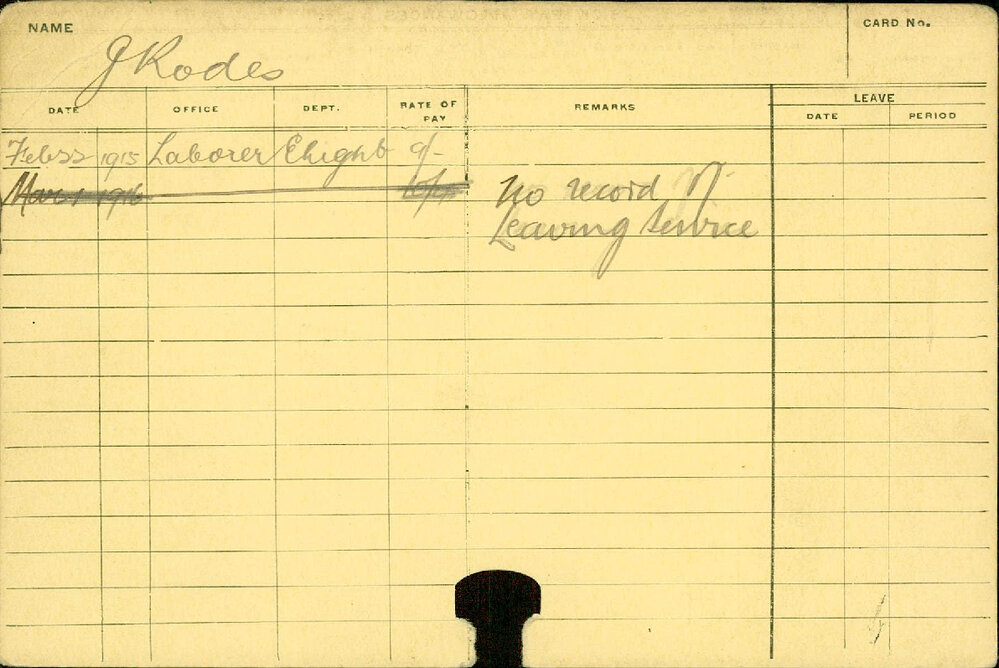 NAME
CARD No.
J Rodes
DATE OFFICE DEPT. RATE OF PAY REMARKS LEAVE
DATE PERIOD
Feb 22 1915 Laborer Elight 9/-
Mar 1 1916 No record of
Leaving Service